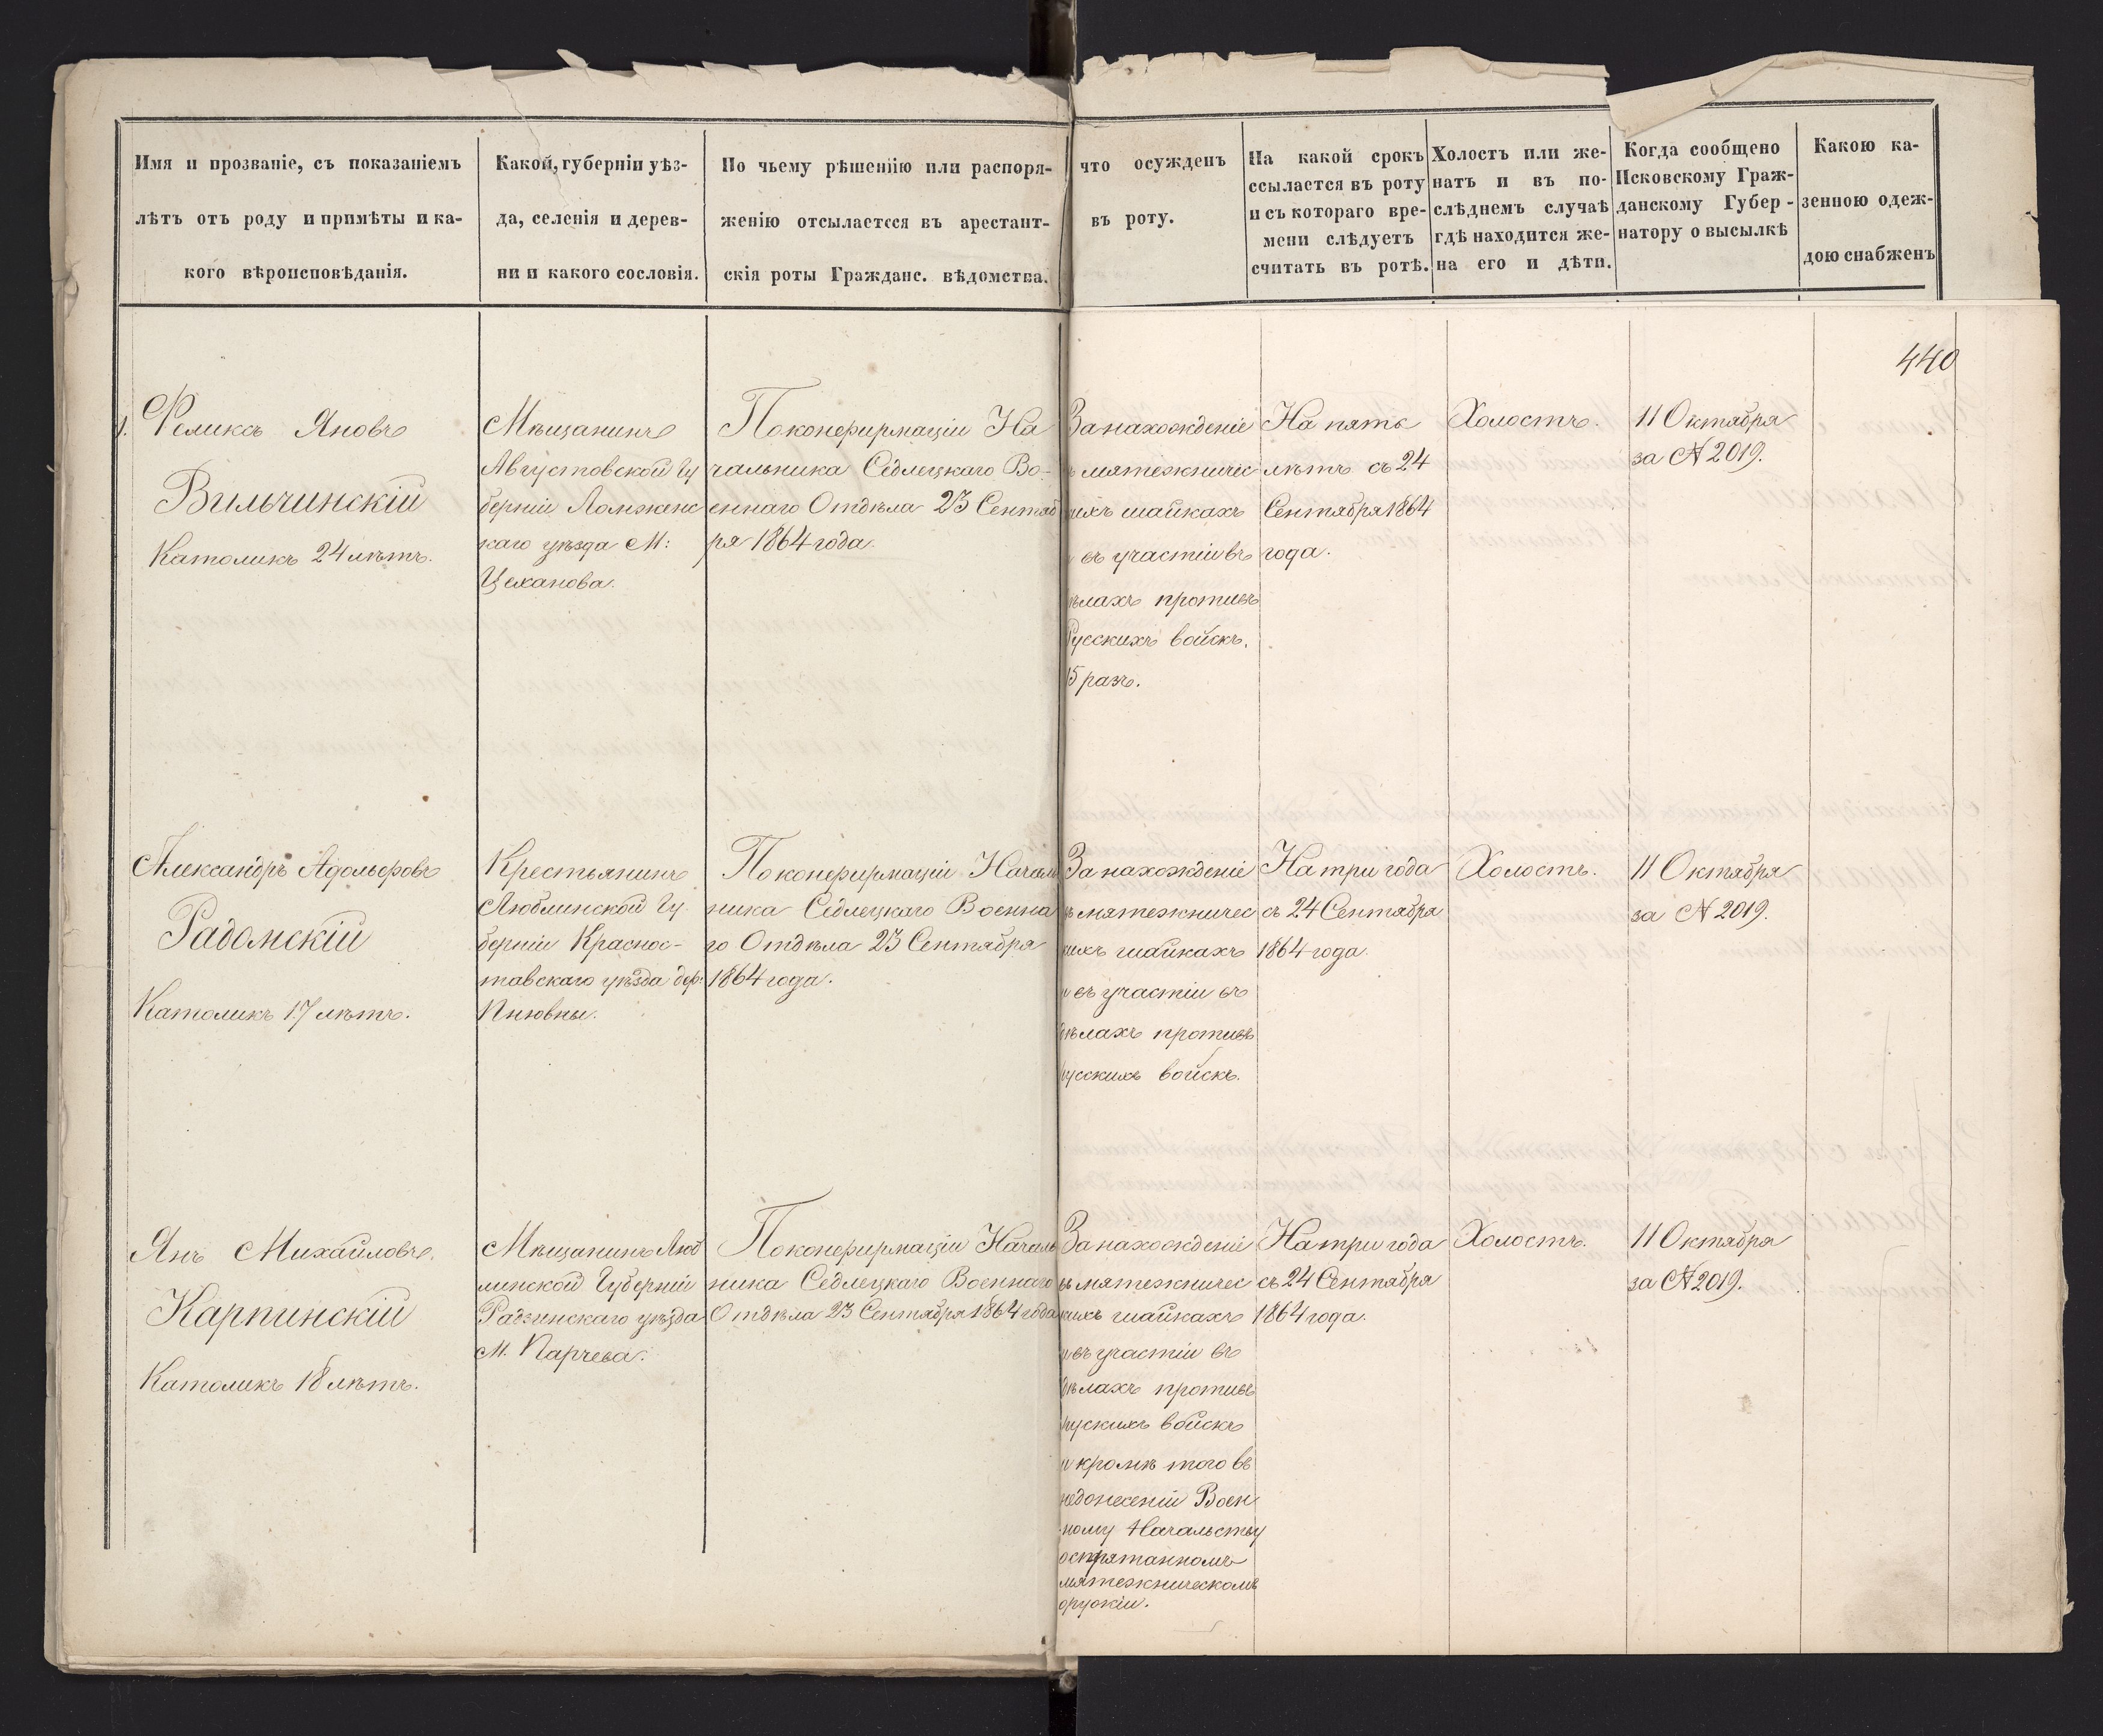 Имя и прозваніе, съ показаніемъ
лѣтъ отъ роду и примѣты и ка-
кого вѣроисповѣданія.
Какой, губерніи уѣз-
да, селенія и дерев-
ни и какого сословія.
По чьему рѣшенію или распоря-
женію отсылается въ арестант-
скія роты Гражданс. вѣдомства.
что осужденъ
въ роту.
На какой срокъ
ссылается въ роту
и съ котораго вре-
мени слѣдуетъ
считать въ ротѣ.
Холостъ или же-
натъ и въ по-
слѣднемъ случаѣ
гдѣ находится же-
на его и дѣти.
Когда сообщено
Псковскому Граж-
данскому Губер-
натору о высылкѣ
Какою ка-
зенною одеж-
дою снабженъ
440
1. Феликсъ Яновъ
Вильчинскій
Католикъ 24 лѣтъ.
Мѣщанинъ
Августовской Гу
берніи Ломженс
каго уѣзда М:
Цеханова.
По конфирмаціи На
чальника Сѣдлецкаго Во-
еннаго Отдѣла 23 Сентяб
ря 1864 года.
За нахожденіе
въ мятежничес
кихъ шайкахъ
и въ участіи въ
дѣлахъ противъ
Русскихъ войскъ.
15 разъ.
На пять
лѣтъ съ 24
Сентября 1864
года.
Холостъ.
11 Октября
за № 2019.
Александръ Адольфовъ
Радомскій
Католикъ 17 лѣтъ.
Крестьянинъ
Люблинской Гу
берніи Краснос-
тавскаго уѣзда дер:
Пнювны.
По конфирмаціи Началь
ника Сѣдлецкаго Военна
го Отдѣла 23 Сентября
1864 года.
За нахожденіе
въ мятежничес
кихъ шайкахъ
и въ участіи въ
дѣлахъ противъ
русскихъ войскъ.
На три года
съ 24 Сентября
1864 года.
Холостъ.
11 Октября
за № 2019.
Янъ Михайловъ.
Карпинскій
Католикъ 18 лѣтъ.
Мѣщанинъ Люб
линской Губерніи
Радзинскаго уѣзда
М. Парчева.
По конфирмаціи Началь
ника Седлецкаго Военнаго
Отдѣла 23 Сентября 1864 года
За нахожденіе
въ мятежничес
кихъ шайкахъ
и въ участіи въ
дѣлахъ противъ
рускихъ войскъ
и кромѣ того въ
недонесеніи Воен
ному Начальству
о спрятанномъ
мятежническомъ
оружіи.
На три года
съ 24 Сентября
1864 года.
Холостъ.
11 Октября
за № 2019.